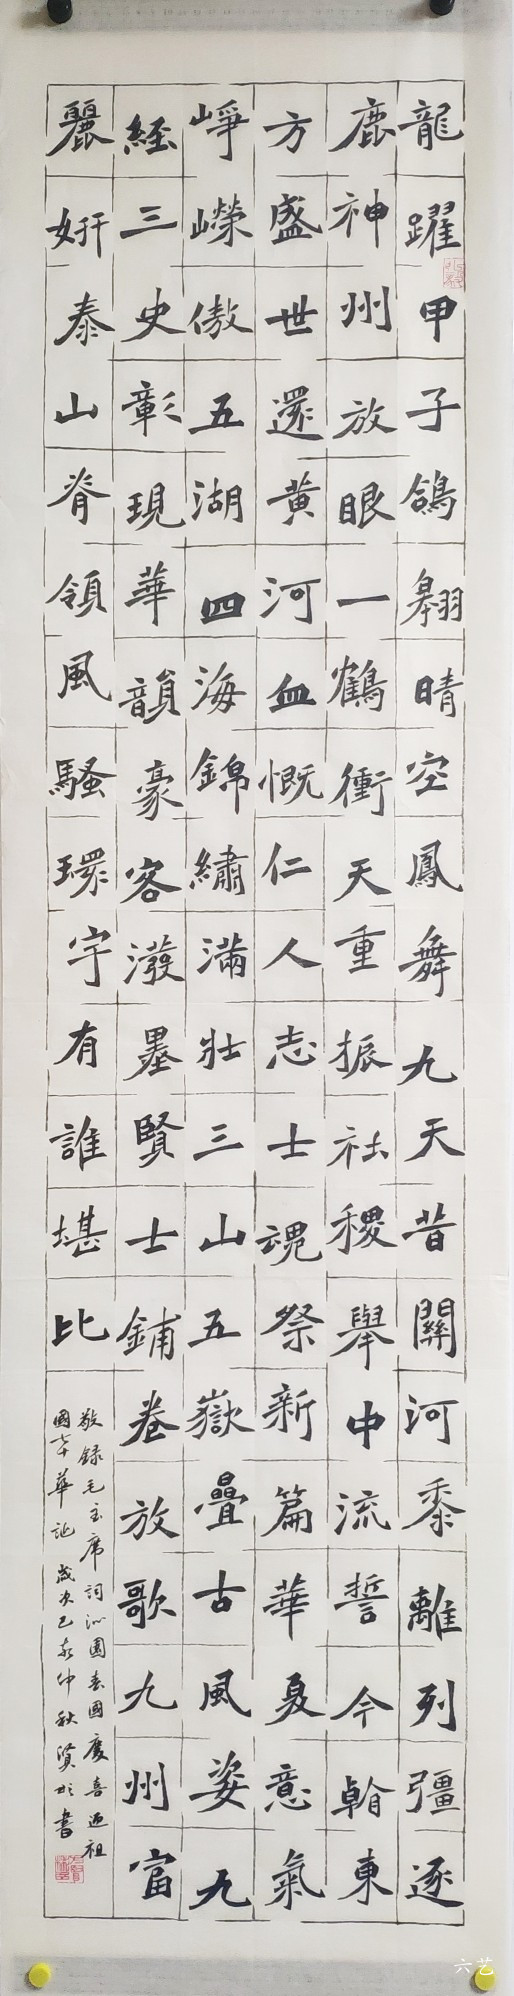 龍躍甲子鴿翱晴空鳳舞九天昔關河黍離列彊逐
鹿神州放眼一鶴衝天重振社稷舉中流誓今朝東
方盛世還黃河血慨仁人志士魂祭新篇華夏意氣
崢嶸傲五湖四海錦繡滿壯三山五嶽疊古風姿九
經三史彰現華韻豪客潑墨賢士鋪卷放歌九州富
麗妍泰山脊領風騷環宇有誰堪比
敬録毛主席詞沁園春國慶喜迎祖
國七十華誕歲次己亥仲秋賢書
六艺